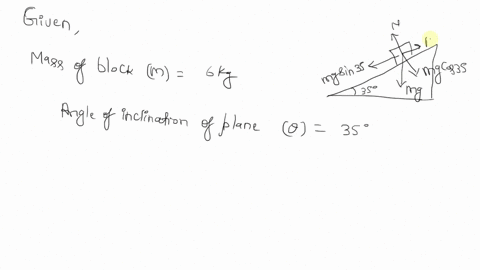 Given,
Mass of block (m) = 6 kg
Angle of inclination of plane (θ) = 35°
N
mg sin 35
mg cos 35
35°
mg